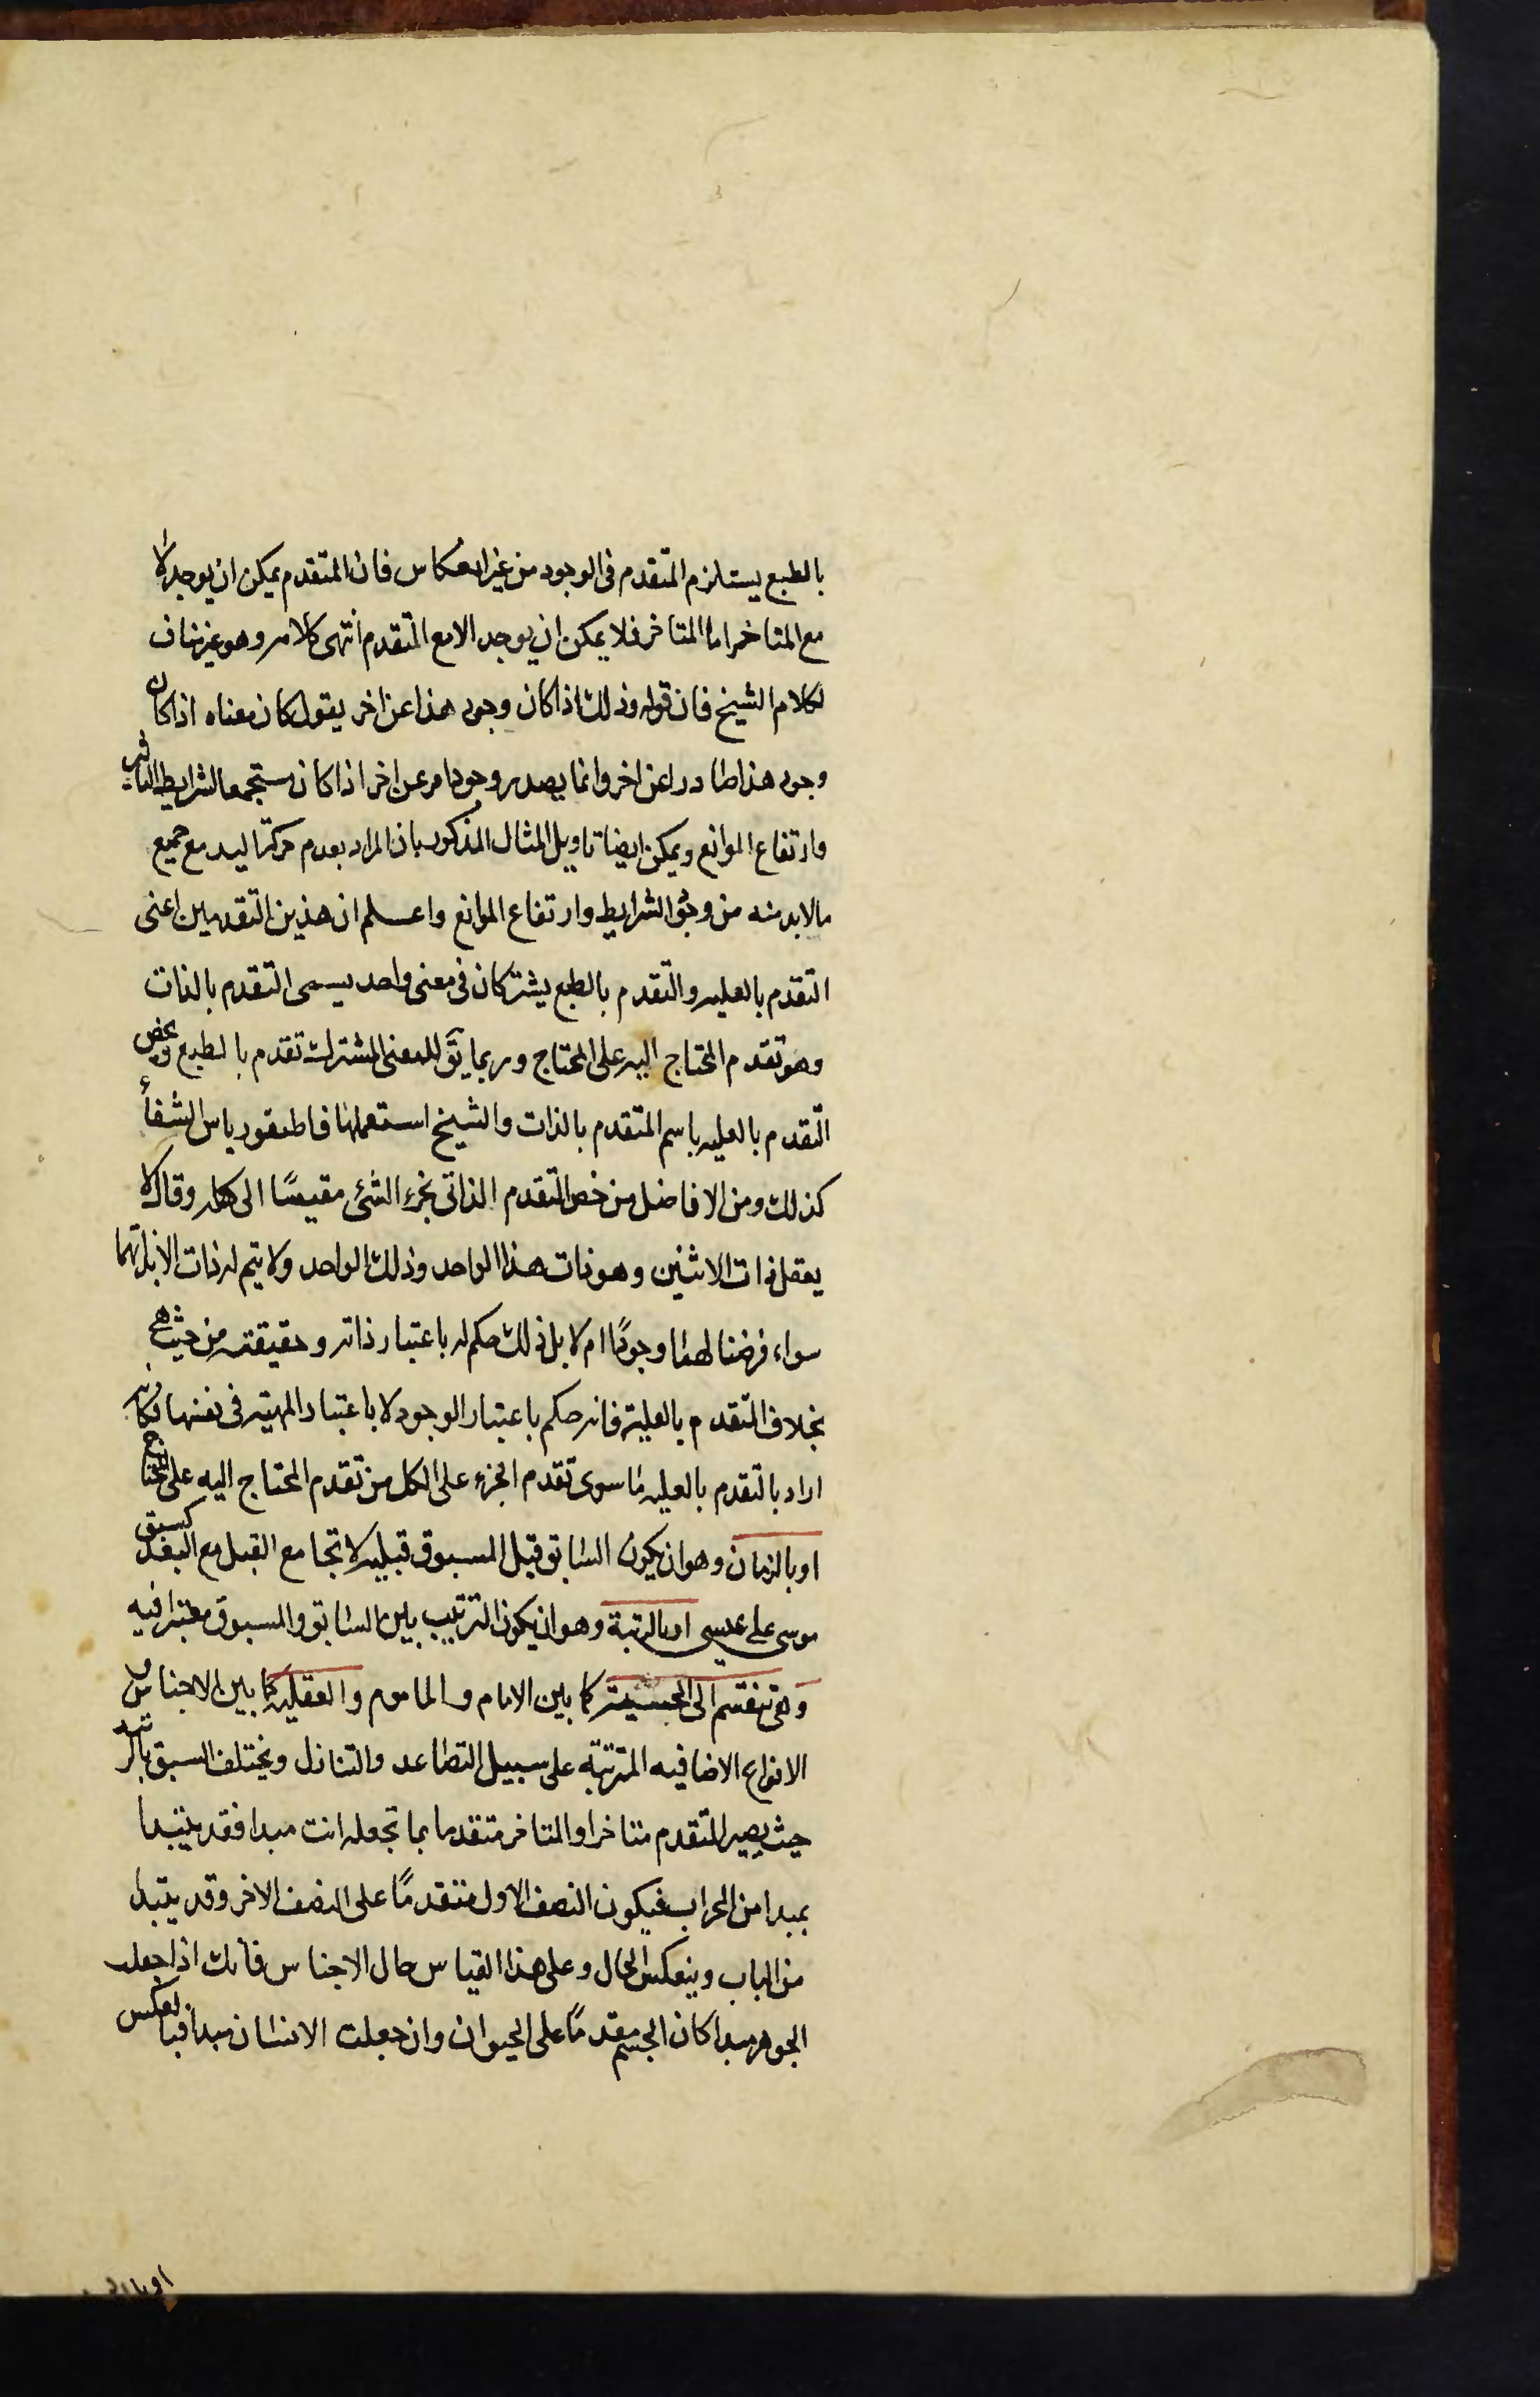 بالطبع يستلزم المتقدم فى الوجود من غير انعكاس فان المتقدم يمكن ان يوجد لا
مع المتاخر اما المتاخر فلا يمكن ان يوجد الا مع المتقدم انتهى كلامه وهو غير مناف
لكلام الشيخ فان قوله وذلك اذا كان وجود هذا عن اخر يقول كان معناه اذا كان
وجود هذا صادرا عن اخر وانما يصدر وجود امر عن اخر اذا كان مستجمعا لشرايط التاثير
وارتفاع الموانع ويمكن ايضا تاويل المثال المذكور بان المراد بعدم حركة اليد مع جميع
مالابد منه من وجود الشرايط وارتفاع الموانع واعلم ان هذين التقدمين اعنى
التقدم بالعليه والتقدم بالطبع يشتركان فى معنى واحد يسمى التقدم بالذات
وهو تقدم المحتاج اليه على المحتاج وربما يق للمعنى المشترك تقدم بالطبع ويخص
التقدم بالعليه باسم المتقدم بالذات والشيخ استعملها فى قاطيغورياس الشفأ
كذلك ومن الافاضل من خص التقدم الذاتى بجزء الشئ مقيسًا الى كله وقال لا
يعقل ذات الاثنين وهو ذات هذا الواحد وذلك الواحد ولا يتم له ذات الا بذاتهما
سواء فرضنا لهما وجودًا ام لا بل ذلك حكم له باعتبار ذاته وحقيقته من حيث هى
بخلاف التقدم بالعلية فانه حكم باعتبار الوجود لا باعتبار المهية فى نفسها فكانه
اراد بالتقدم بالعليه ما سوى تقدم الجزء على الكل من تقدم المحتاج اليه على المحتاج
او بالزمان وهو ان يكون السابق قبل المسبوق قبليه لا تجامع القبل مع البعد كسبق
موسى على عيسى او بالرتبة وهو ان يكون الترتيب بين السابق والمسبوق معتبرا فيه
وهى تنقسم الى الحسية كما بين الامام والماموم والعقليه كما بين الاجناس و
الانواع الاضافيه المترتبة على سبيل التصاعد والتنازل ويختلف السبق بالرتبه
حيث يصير المتقدم متاخرا والمتاخر متقدما بما تجعله انت مبدا فقد يبتدا
بمبدا من المحراب فيكون النصف الاول متقدمًا على النصف الاخر وقد يبتدا
من الباب وينعكس الحال وعلى هذا القياس حال الاجناس فانك اذا جعلت
الجوهر مبدا كان الجسم مقدمًا على الحيوان وان جعلت الانسان مبدا فبالعكس